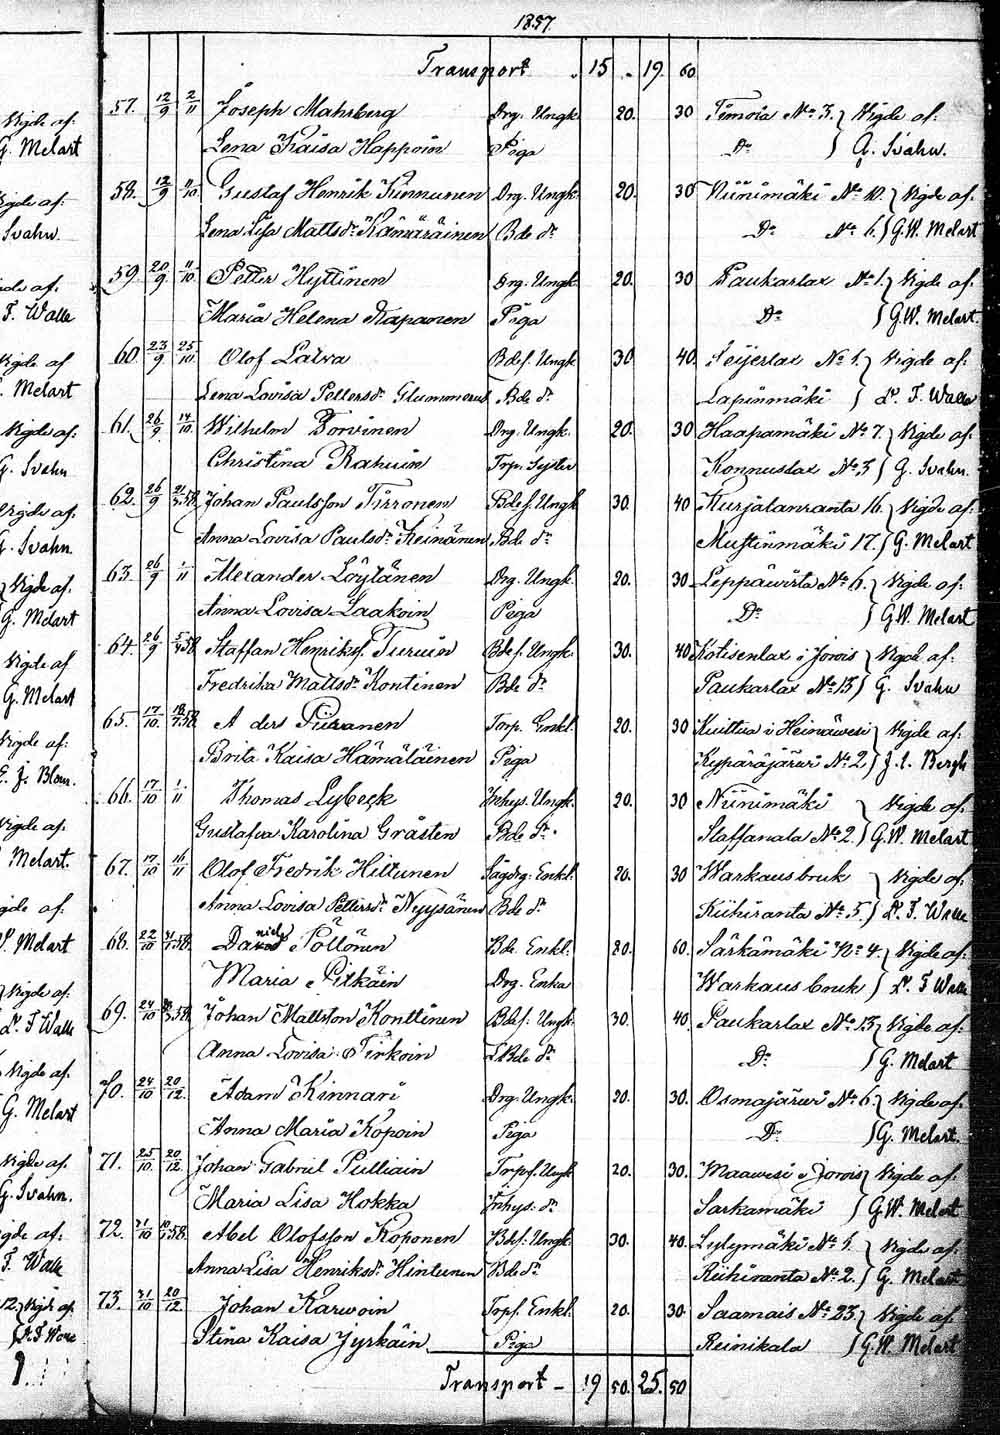 1857.
Transport . 15 . 19. 60.
Vigde af: 57. 12/9 2/11 Joseph Mahsberg Drg. Ungk. 20. 30 Timola No 3. Vigde af:
G. Melart Lena Kaisa Happoin Piga Do A. Svahn.
Vigde af: 58. 12/9 11/10 Gustaf Henrik Kinnunen Drg. Ungk. 20. 30 Niinimäki No 10. Vigde af:
Svahn. Lena Lisa Mattsdr Kämäräinen Bde dr Do No 6. G.W. Melart
af. 59. 20/9 11/10 Petter Hyttinen Drg. Ungk. 20. 30 Paukarlax No 1. Vigde af.
F. Walle Maria Helena Kapanen Piga Do G.W. Melart.
Vigde af 60. 23/9 25/10 Olof Latva Bdes. Ungk. 30. 40. Seijerlax No 1. Vigde af:
Melart Lena Lovisa Pettersdr Glummerus Bde dr Lapinmäki F. Walle
Vigde af: 61. 26/9 14/10 Wilhelm Torvinen Drg. Ungk. 20. 30 Haapamäki No 7. Vigde af:
G. Svahn Christina Rahuin Trp. Syster Konnuslax No 3 G. Svahn.
Vigde af: 62. 26/9 58. Johan Paulsson Tirronen Bdes. Ungk. 30. 40 Kurjalanranta 16. Vigde af:
Svahn Anna Lovisa Paulsdr Keinänen Bde dr Mustinmäki 17. G. Melart
Vigde af: 63. 26/9 1/11 Alexander Löytänen Drg. Ungk. 20. 30 Leppäwirta No 6. Vigde af:
G. Melart Anna Lovisa Laakoin Piga Do G.W. Melart
Vigde af 64. 26/9 58. Staffan Henriks. Turuin Bdes. Ungk. 30. 40 Kotisenlax i Jorois Vigde af:
G. Melart Fredrika Mattsdr Kontinen Bde dr Paukarlax No 13 G. Svahn
Vigde af: 65. 17/10 58. A ders Piiranen Torp. Enkl. 20. 30 Kuittua i Heinäwesi Vigde af:
Blom. Brita Kaisa Hämäläinen Piga Kypäräjärwi No 2. Bergh
Vigde af: 66. 17/10 1/11 Thomas Lybeck Inhys. Ungk. 20. 30 Niinimäki Vigde af:
Melart. Gustafva Karolina Gråsten Bde dr. Staffanala No 2. G.W. Melart
67. 17/10 16/11 Olof Fredrik Hiltunen Sågdrg. Enkl. 20. 30 Warkausbruk Vigde af:
Vigde af: Anna Lovisa Pettersdr Nyysänen Bde dr Kiihiranta No 5. F. Walle
Melart 68. 22/10 58. Daniel Pöllönen Bde. Enkl. 20. 60. Särkämäki No 4. Vigde af:
Maria Pitkäin Drg. Enka Warkaus bruk F Walle
Vigde af: 69. 24/10 58. Johan Mattsson Konttinen Bdes. Ungk. 30. 40. Paukarlax No 13 Vigde af:
F Walle Anna Lovisa Tirkoin LBde dr Do G. Melart
Vigde af. 70. 24/10 20/12. Adam Kinnari Drg. Ungk. 20. 30. Osmajärwi No 6. Vigde af:
G. Melart Anna Maria Kopoin Piga Do G. Melart.
Vigde af. 71. 25/10 20/12 Johan Gabriel Pulliain Trps. Ungk 20. 30. Maawesi i Jorois Vigde af:
G. Svahn. Maria Lisa Hokka Inhys. dr Sarkamäki G.W. Melart
Vigde af: 72. 31/10 58. Abel Olofsson Koponen Bdes. Ungk. 30. 40. Lylymäki No 1. Vigde af:
F. Walle Anna Lisa Henriksdr Hintunen Bde dr Riihiranta No 2. G. Melart.
Vigde af 73. 31/10 20/12 Johan Karwoin Torps. Enkl. 20. 30 Saamais No 23. Vigde af:
Stina Kaisa Jyrkäin Piga Reinikala G.W. Melart
Transport - 19 50. 25. 50